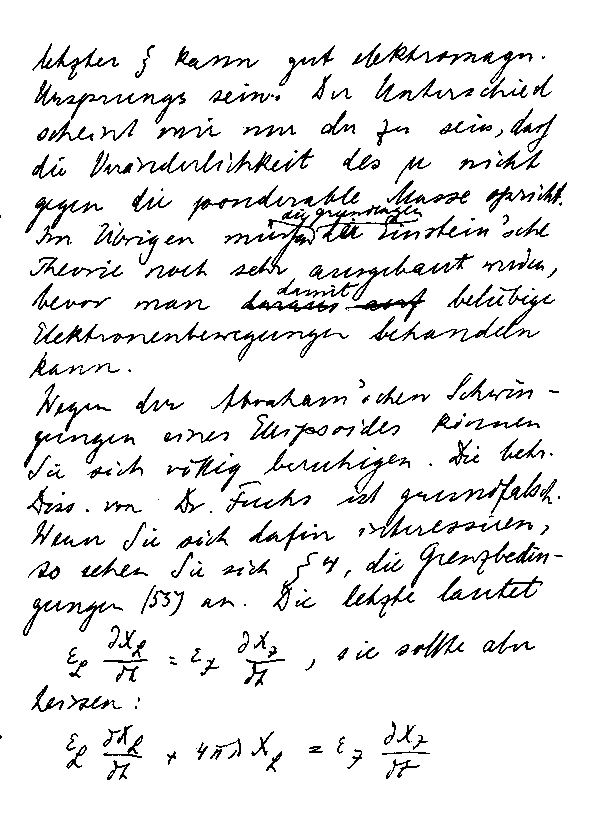 letzter § kann gut elektromagn.
Ursprungs sein. Der Unterschied
scheint mir nur der zu sein, daß
die Veränderlichkeit des μ nicht
gegen die ponderable Masse spricht.
die Grundlagen
Im Übrigen müssen der Einstein'sche
Theorie noch sehr ausgebaut werden,
damit
bevor man daraus auf beliebige
Elektronenbewegungen behandeln
kann.
Wegen der Abraham'schen Schwin-
gungen eines Ellipsoides können
Sie sich völlig beruhigen. Die betr.
Diss. von Dr. Fuchs ist grundfalsch.
Wenn Sie sich dafür interessiren,
so sehen Sie sich § 4, die Grenzbedin-
gungen (53) an. Die letzte lautet
ε_L ∂X_L/∂t = ε_I ∂X_I/∂t , sie sollte aber
heissen:
ε_L ∂X_L/∂t + 4πλ X_L = ε_I ∂X_I/∂t